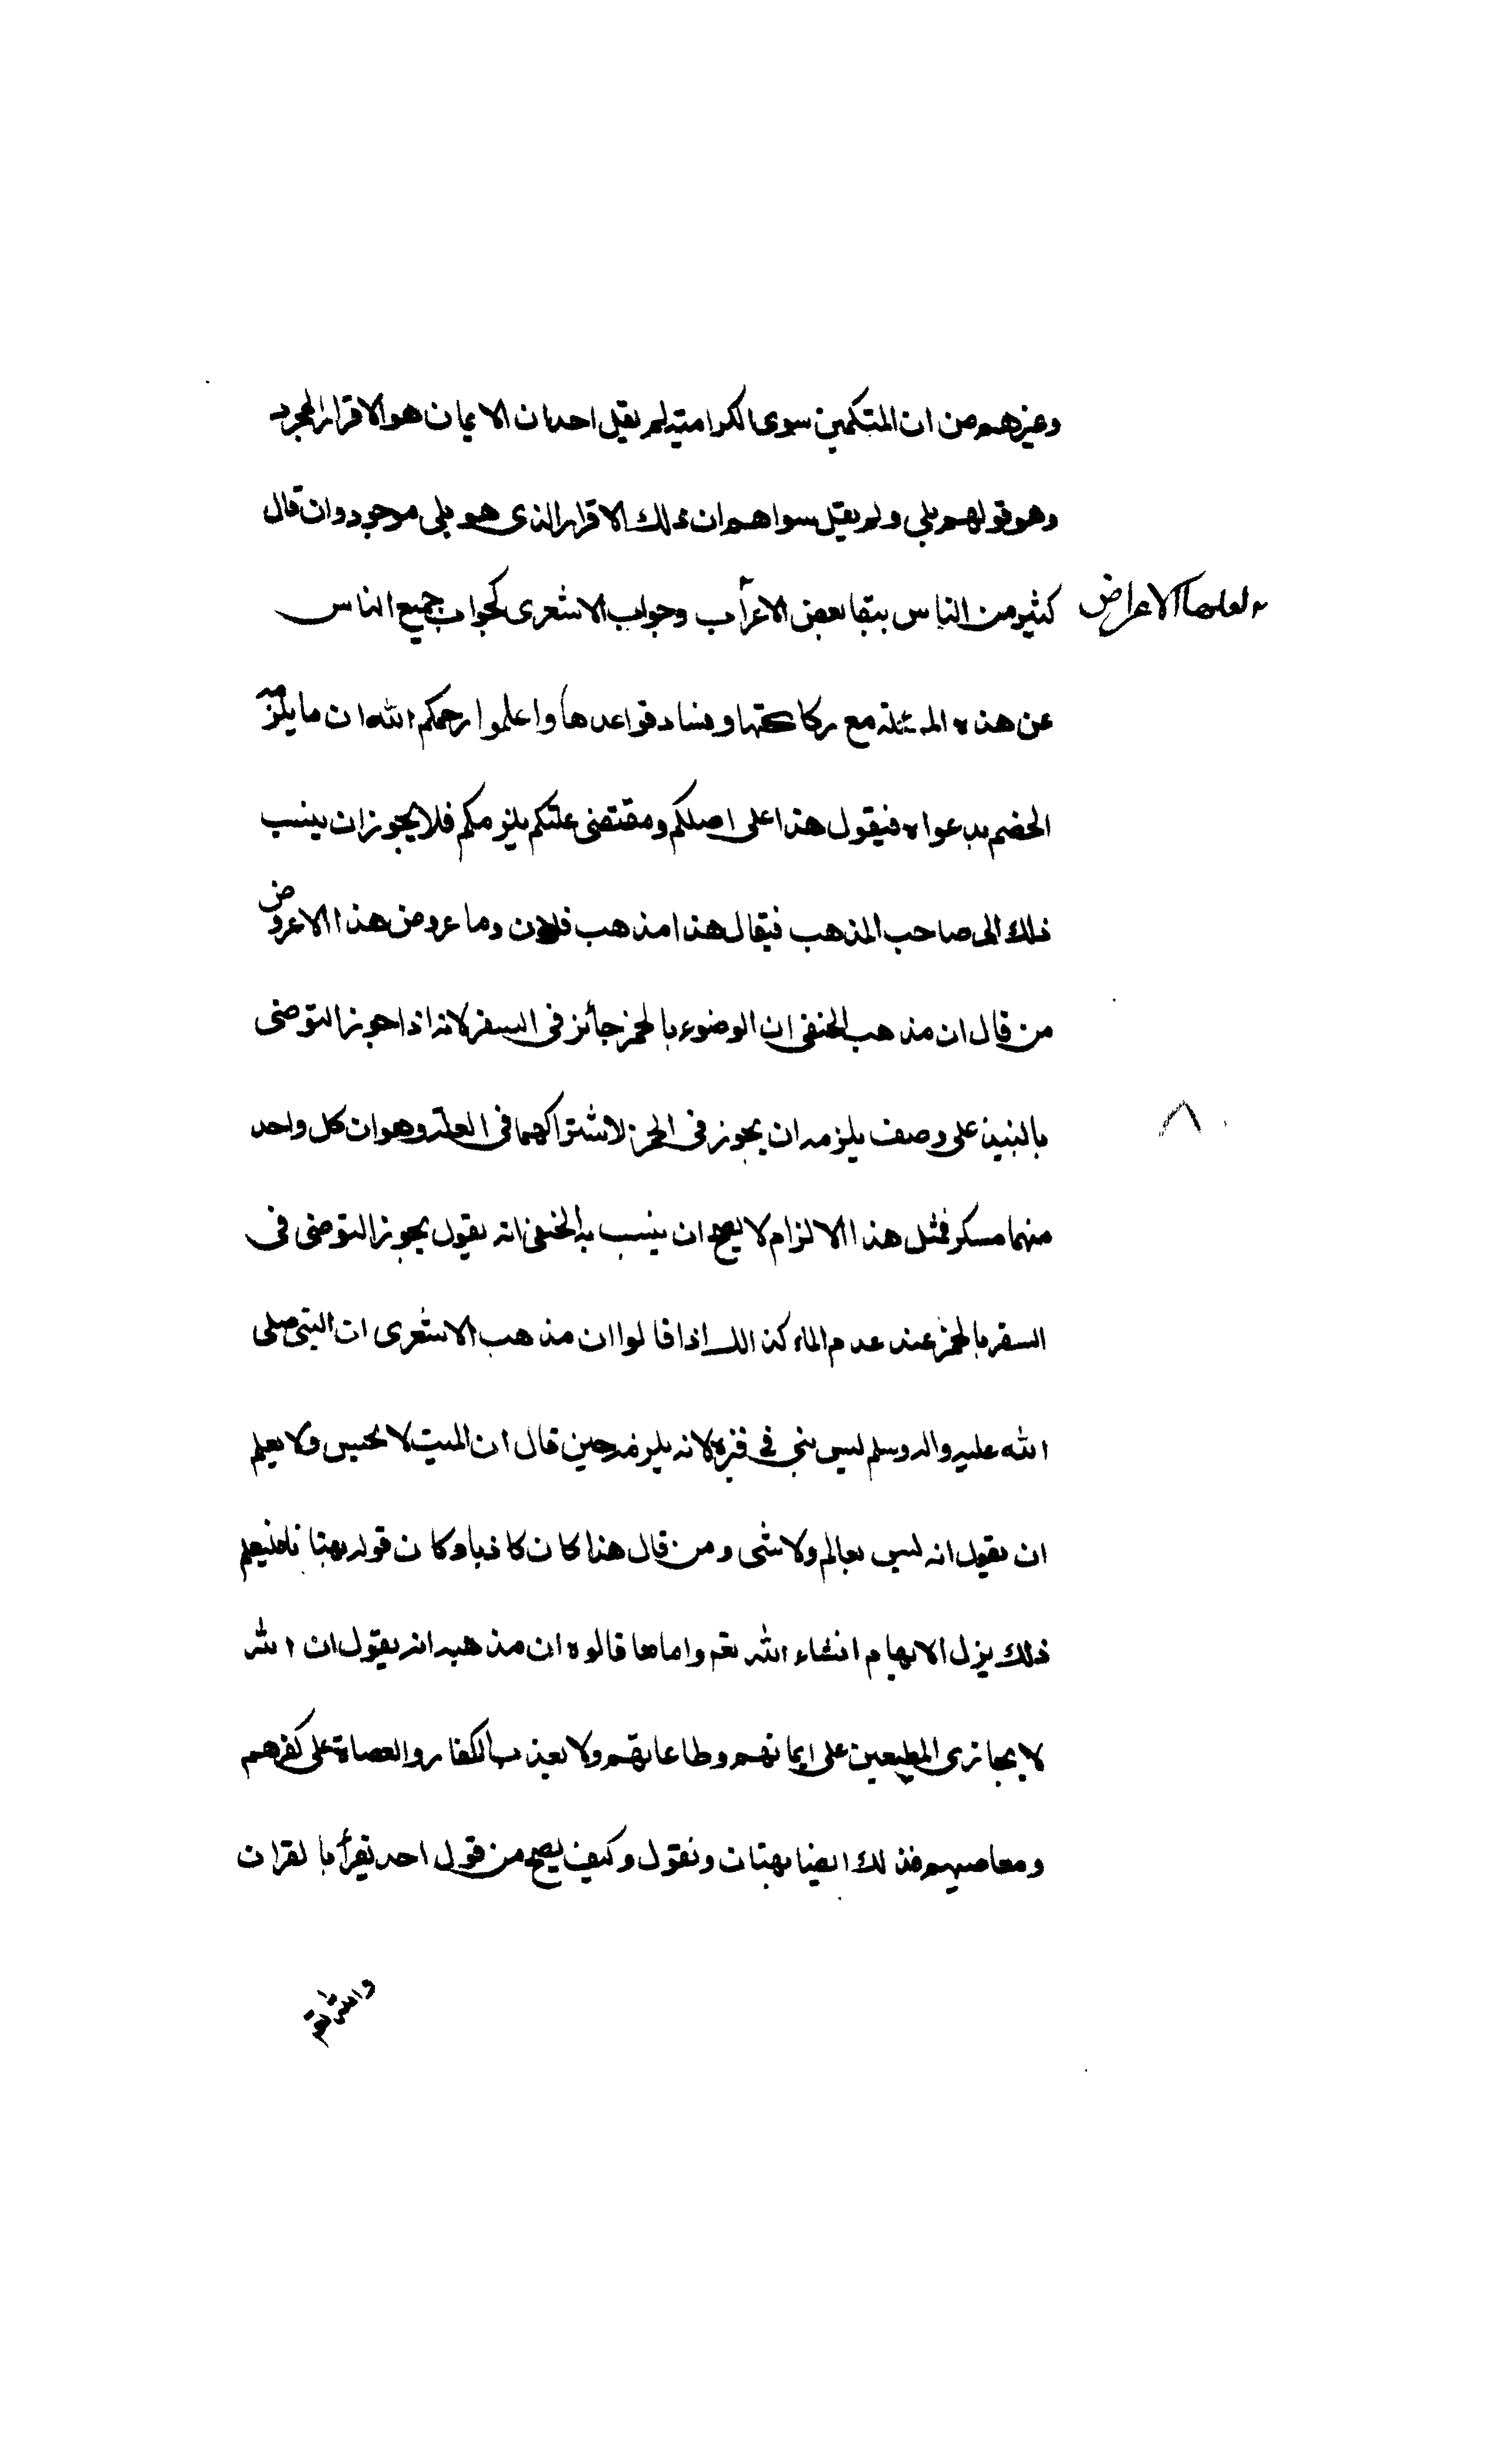 وغيرهم من ان المتكلمين سوى الكرامية لم يقل احد بان الايمان هو الاقرار المجرد
وهو قولهم بلى ولم يقل سواهم ان ذلك الاقرار الذى هو بلى موجود وان قال
كثير من الناس ببقا بعض الاعراب وجواب الاشعرى كجواب جميع الناس
لعلها الاعراض
عن هذه المسئلة مع ركاكتها وفساد قواعدها واعلموا رحمكم الله ان ما يلزمه
الخصم بدعواه فيقول هذا على اصلكم ومقتضى علتكم يلزمكم فلا يجوز ان ينسب
ذلك الى صاحب المذهب فيقال هذا مذهب فلان وما عروض هذا الا عروض
من قال ان مذهب الحنفى ان الوضوء بالخمر جائز فى السفر لانه اذا جوز التوضى
بالنبيذ على وصف يلزمه ان يجوز فى الخمر لاشتراكهما فى العلة وهو ان كل واحد
٨
منهما مسكر فمثل هذا الالزام لا يصح ان ينسب به الحنفى انه يقول يجوز التوضى فى
السفر بالخمر عند عدم الماء كذالك اذا قالوا ان مذهب الاشعرى ان النبى صلى
الله عليه واله وسلم ليس بنبى فى قبره لانه يلزمه حين قال ان الميت لا يحس ولا يعلم
ان يقول انه ليس بعالم ولا شى ومن قال هذا كان كاذبا وكان قوله بهتانا فليعلم
ذلك يزل الابهام انشاء الله تعم واما ما قالوه ان مذهبه انه يقول ان الله
لا يجازى المطيعين على ايمانهم وطاعاتهم ولا يعذب الكفار والعصاة على كفرهم
ومعاصيهم فذلك ايضا بهتان ونقول وكيف يصح من قول احد يقرأ بالقران